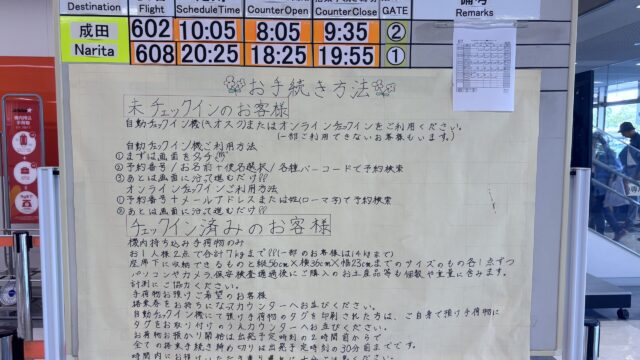 Destination Flight ScheduleTime CounterOpen CounterClose GATE Remarks
成田 Narita 602 10:05 8:05 9:35 ②
608 20:25 18:25 19:55 ①
お手続き方法
未チェックインのお客様
自動チェックイン機(キオスク)またはオンラインチェックインをご利用ください。
(一部ご利用できないお客様もいます。)
自動チェックイン機ご利用方法
①まずは画面をタッチ
②予約番号/お名前+便名選択/各種バーコードで予約検索
③あとは画面に沿って進むだけ!!
オンラインチェックインご利用方法
①予約番号+メールアドレスまたは姓(ローマ字)で予約検索
②あとは画面に沿って進むだけ!!
チェックイン済みのお客様
機内持ち込み手荷物のみ
お1人様2点で合計7kgまで!!(一部のお客様は14kgまで)
座席下に収納できるものと縦56cm×横36cm×幅23cmまでのサイズのもの各1点ずつ
パソコンやカメラ、保安検査通過後にご購入のお土産品等も個数や重量に含みます。
計測にご協力ください。
手荷物お預けご希望のお客様
搭乗券をお持ちになってカウンターへお並びください。
自動チェックイン機にて預け手荷物のタグを印刷された方は、ご自身で預け手荷物に
タグをお取り付けのうえカウンターへお並びください。
お荷物お預かり開始は出発予定時刻の2時間前からです。
全てのお手続き締め切りは出発予定時刻の30分前までです。